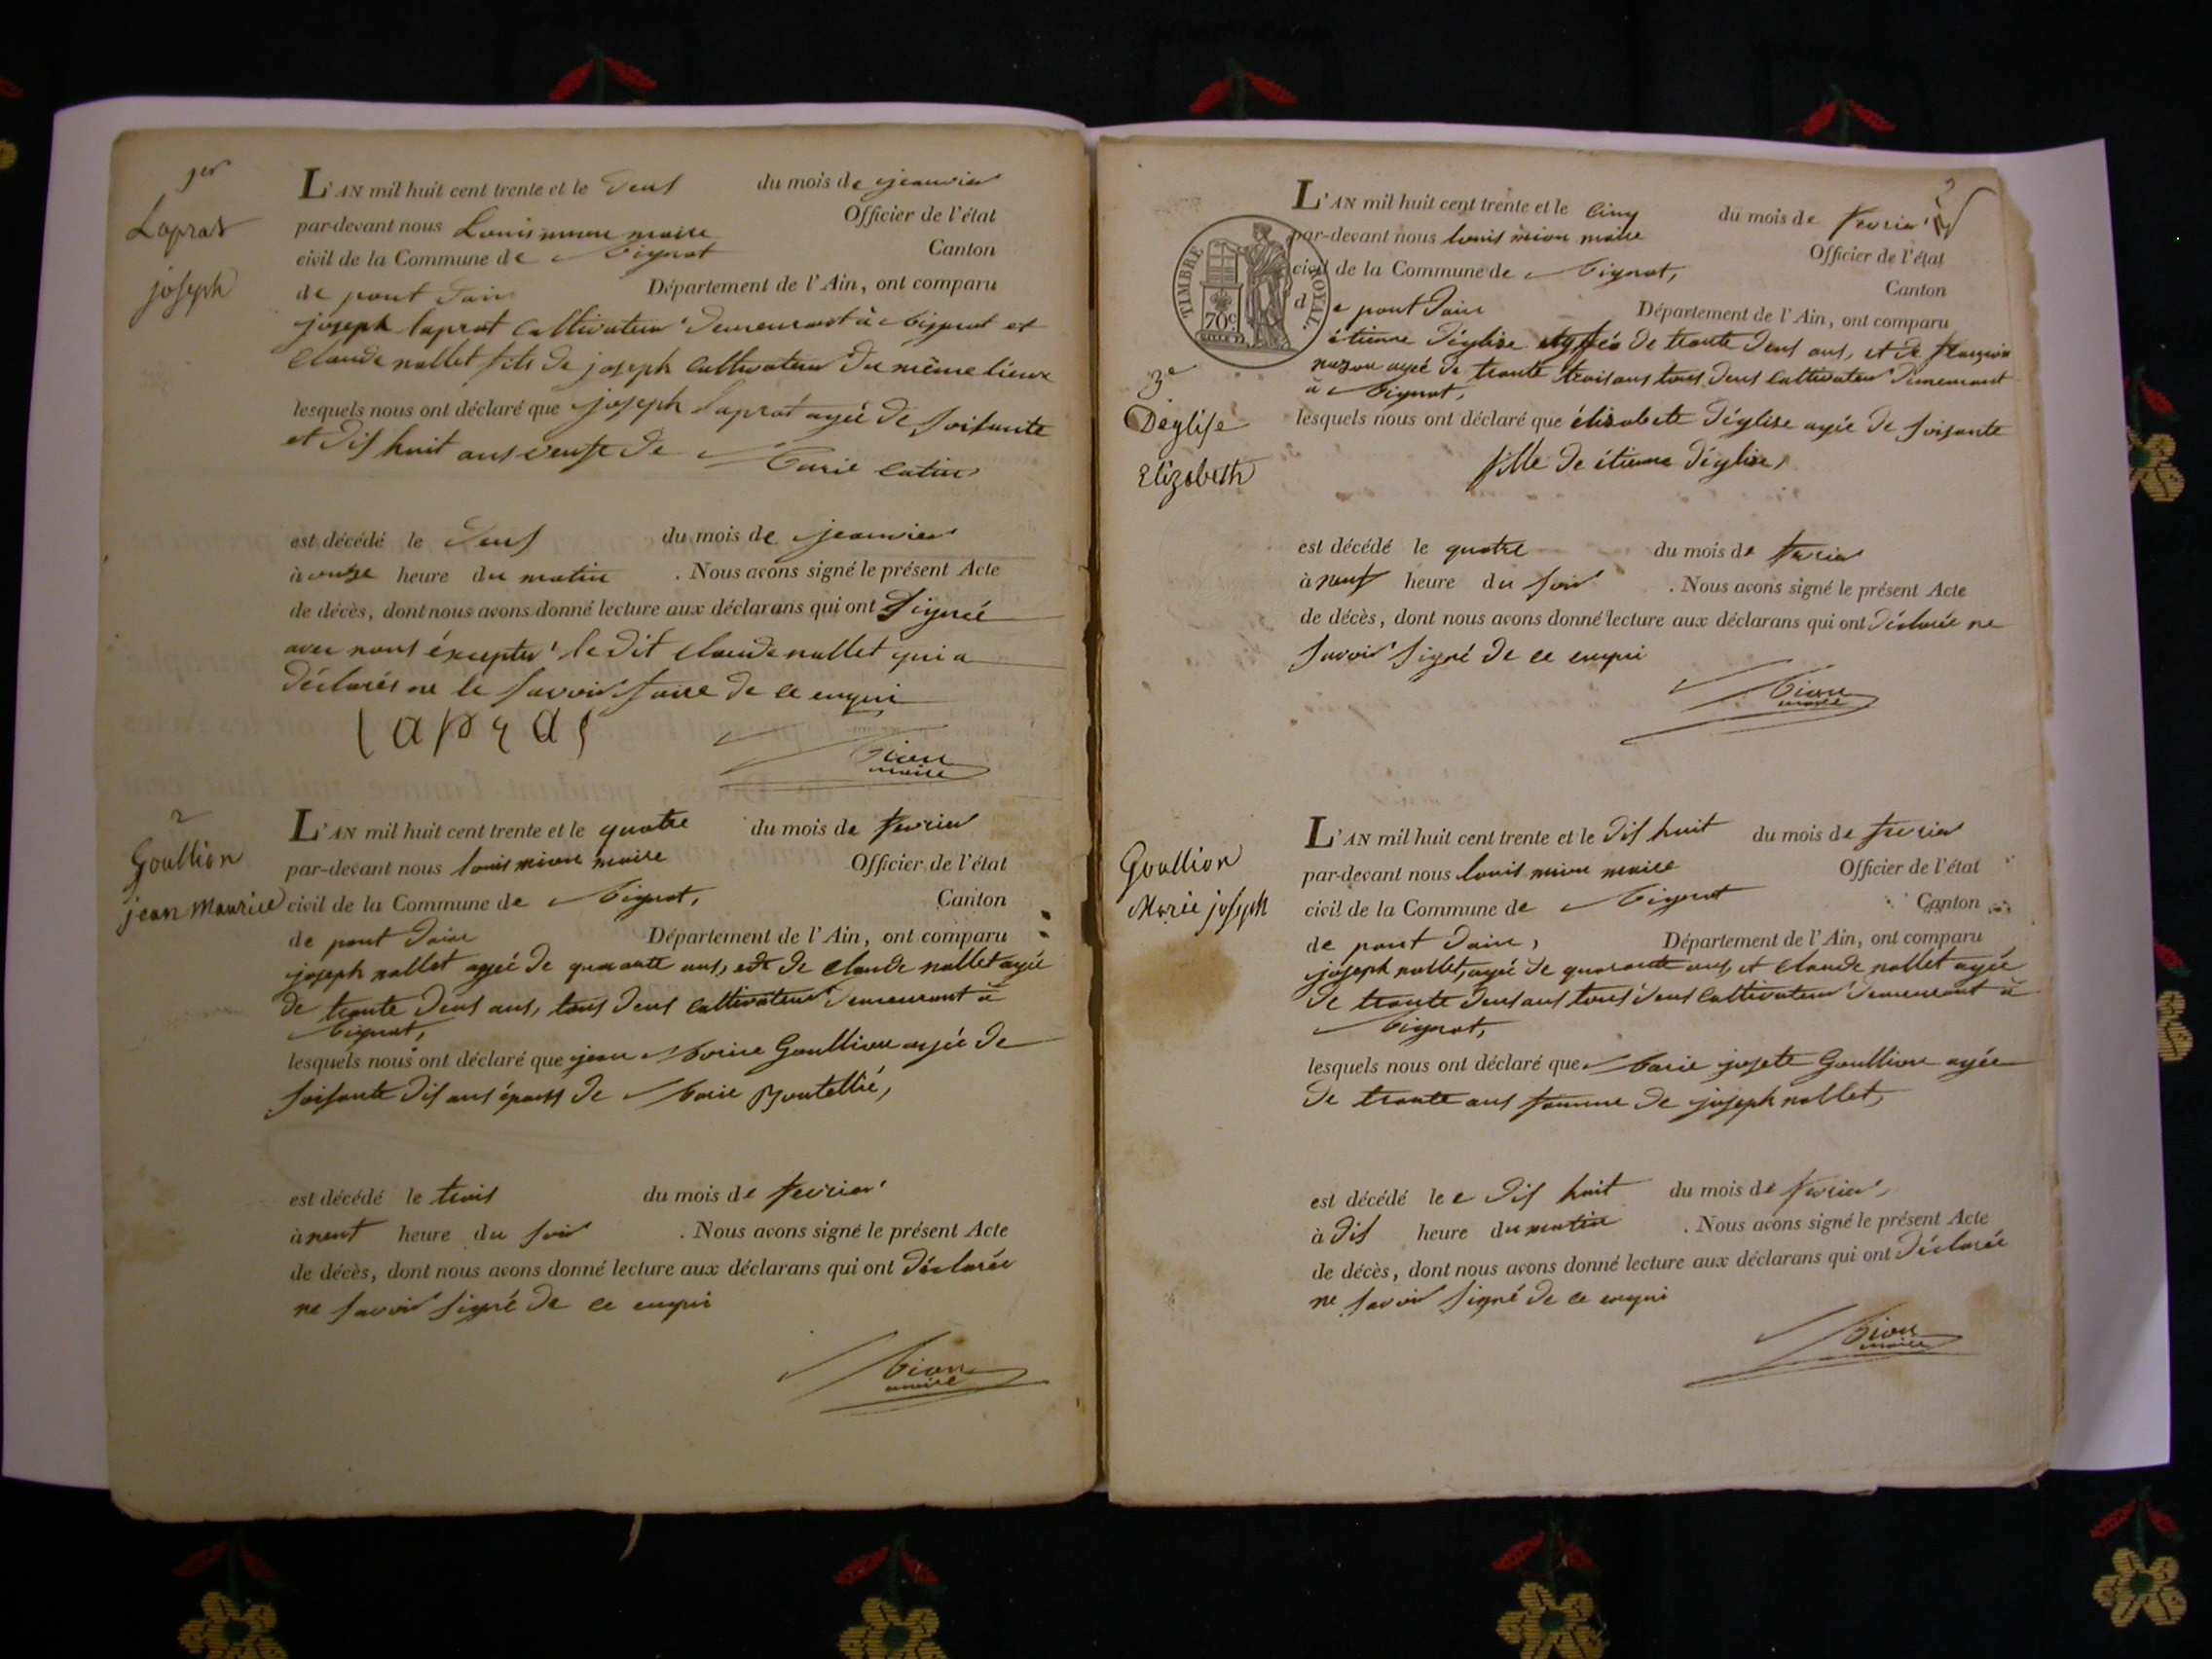 1er
Lapras
joseph
L'AN mil huit cent trente et le deus du mois de jeanvier
par-devant nous Louis mion maire Officier de l'état
civil de la Commune de Mignat Canton
de pont dain Département de l'Ain, ont comparu
joseph laprat cultivateur demeurant à Mignat et
Claude nallet fils de joseph cultivateur du même lieux
lesquels nous ont déclaré que joseph laprat agée de soisante
et dis huit ans veuf de Marie catin
est décédé le deus du mois de jeanvier
à onze heure du matin . Nous avons signé le présent Acte
de décès, dont nous avons donné lecture aux déclarans qui ont signée
avec nous éxcepter le dit claude nallet qui a
déclarés ne le savoir faire de ce enqui
lapras
Mion
maire
2
Goullion
jean Maurice
L'AN mil huit cent trente et le quatre du mois de fevrier
par-devant nous louis mion maire Officier de l'état
civil de la Commune de Mignat, Canton
de pont dain Département de l'Ain, ont comparu
joseph nallet agée de quarante ans, et de claude nallet agée
de trante deus ans, tous deus cultivateur demeurant à
Mignat,
lesquels nous ont déclaré que jean Morice Goullion agée de
soisante dis ans épous de Marie
est décédé le trois du mois de fevrier
à neuf heure du soir . Nous avons signé le présent Acte
de décès, dont nous avons donné lecture aux déclarans qui ont déclarée
ne savoir signé de ce enqui
Mion
maire
TIMBRE ROYAL.
70c
3e
Déglise
Elizabeth
L'AN mil huit cent trente et le cinq du mois de fevrier
par-devant nous louis mion maire Officier de l'état
civil de la Commune de Mignat, Canton
de pont dain Département de l'Ain, ont comparu
étienne déglise agée de trante deus ans, et de françois
agée de trante trois ans tous deus cultivateur demeurant
à Mignat,
lesquels nous ont déclaré que élisabete déglise agée de soisante
fille de étienne déglise,
est décédé le quatre du mois de fevrier
à neuf heure du soir . Nous avons signé le présent Acte
de décès, dont nous avons donné lecture aux déclarans qui ont déclarée ne
savoir signé de ce enqui
Mion
maire
Goullion
Marie joseph
L'AN mil huit cent trente et le dis huit du mois de fevrier
par-devant nous louis mion maire Officier de l'état
civil de la Commune de Mignat Canton
de pont dain, Département de l'Ain, ont comparu
joseph nallet, agée de quarante ans, et claude nallet agée
de trante deus ans tous deus cultivateur demeurant à
Mignat,
lesquels nous ont déclaré que Marie josete Goullion agée
de trante ans famme de joseph nallet,
est décédé le e dis huit du mois de fevrier,
à dis heure du matin . Nous avons signé le présent Acte
de décès, dont nous avons donné lecture aux déclarans qui ont déclarée
ne savoir signé de ce enqui
Mion
maire